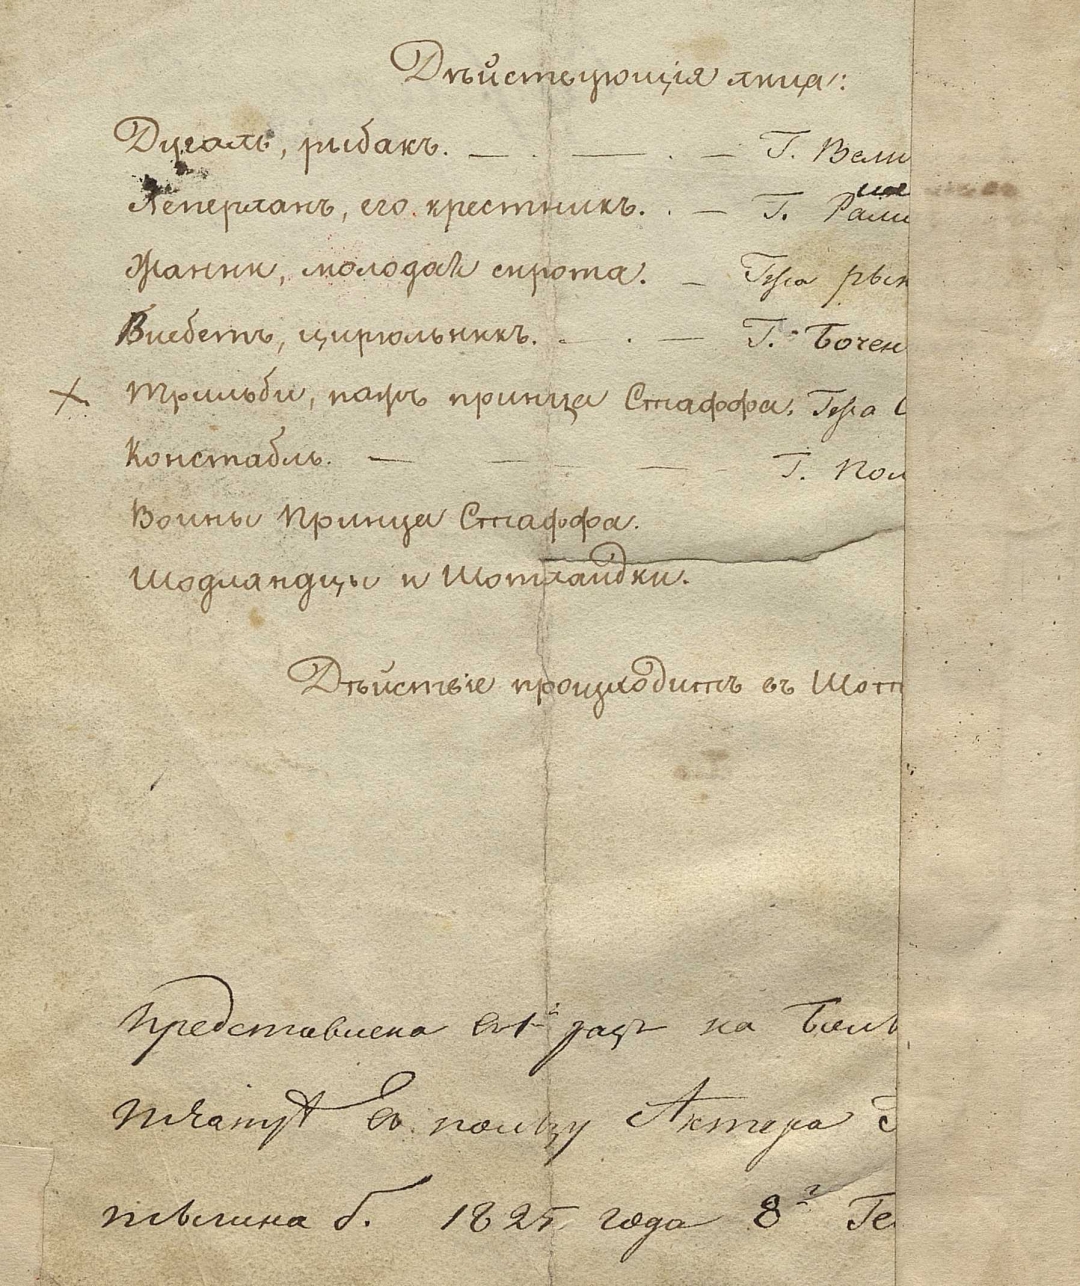 Дѣйствующія лица:
Дугаль, рыбакъ. — . — . — Г. Вели
Леперланъ, его крестникъ. . — Г. Рами
Жанни, молодая сирота. — Гжа рык
Висбетъ, цирюльникъ. — . — Г. Бочен
× Трильби, пажъ принца Стаффа. Гжа
Констабль. — — — — Г. Пол
Воины Принца Стаффа.
Шодландцы и Шотландки.
Дѣйствіе происходитъ въ Шот
Представлена въ 1й разъ на Боль
театрѣ въ пользу Актера
тѣлина б. 1825 года 8го Ге